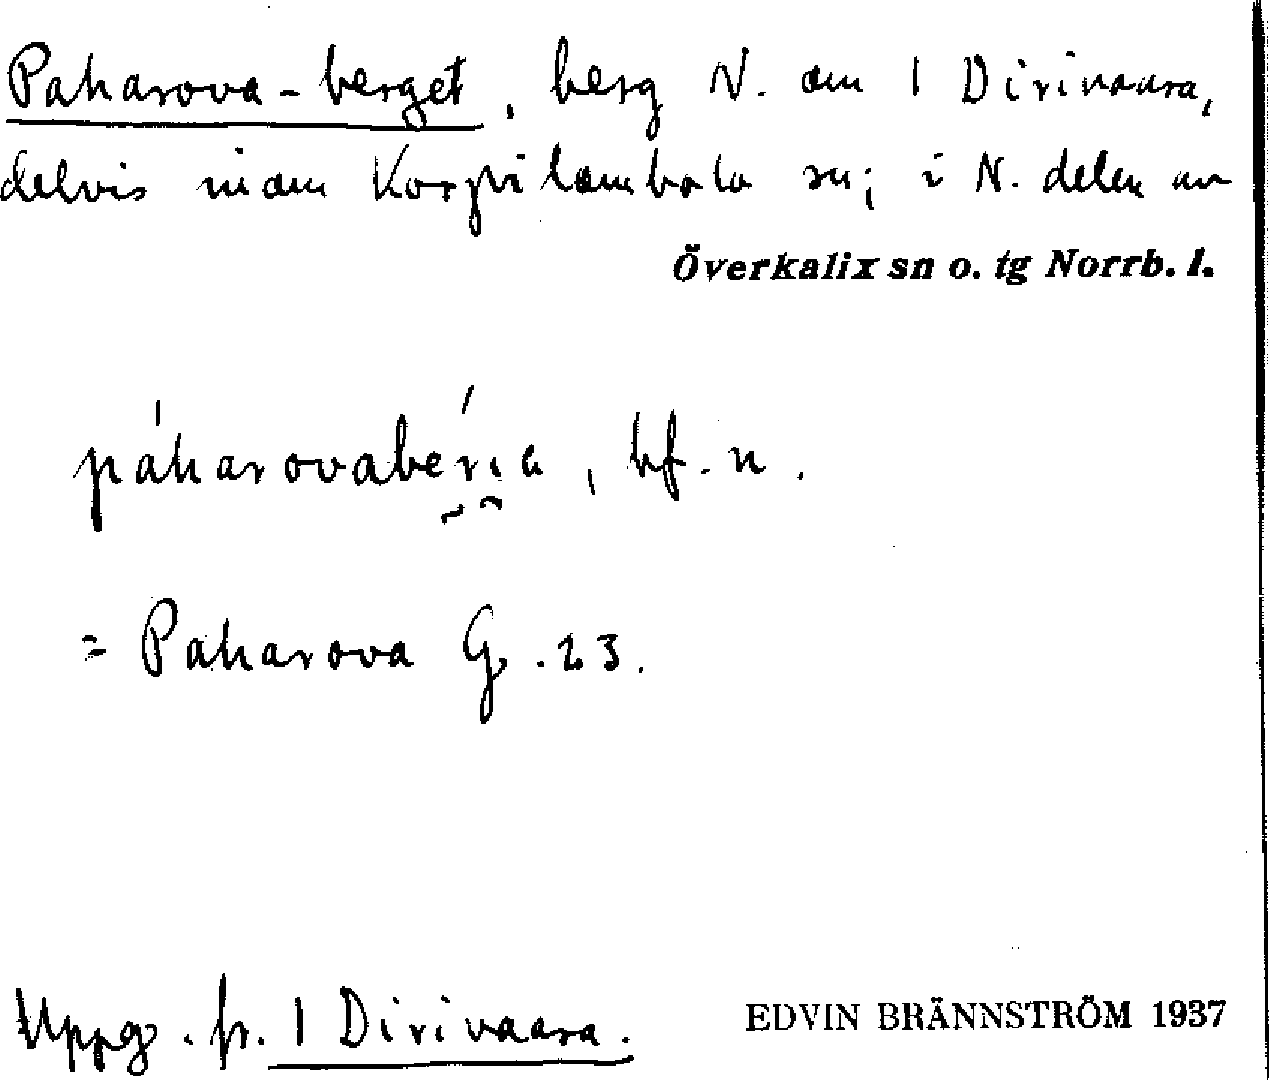 Paharova-berget, berg N. om 1 Dirivaara,
delvis inom Korpilombolo sn; i N. delen av
Överkalix sn o. tg Norrb. l.
páharovabḛri̯a, bf. n.
= Paharova G. 23.
Uppg. fr. 1 Dirivaara.
EDVIN BRÄNNSTRÖM 1937